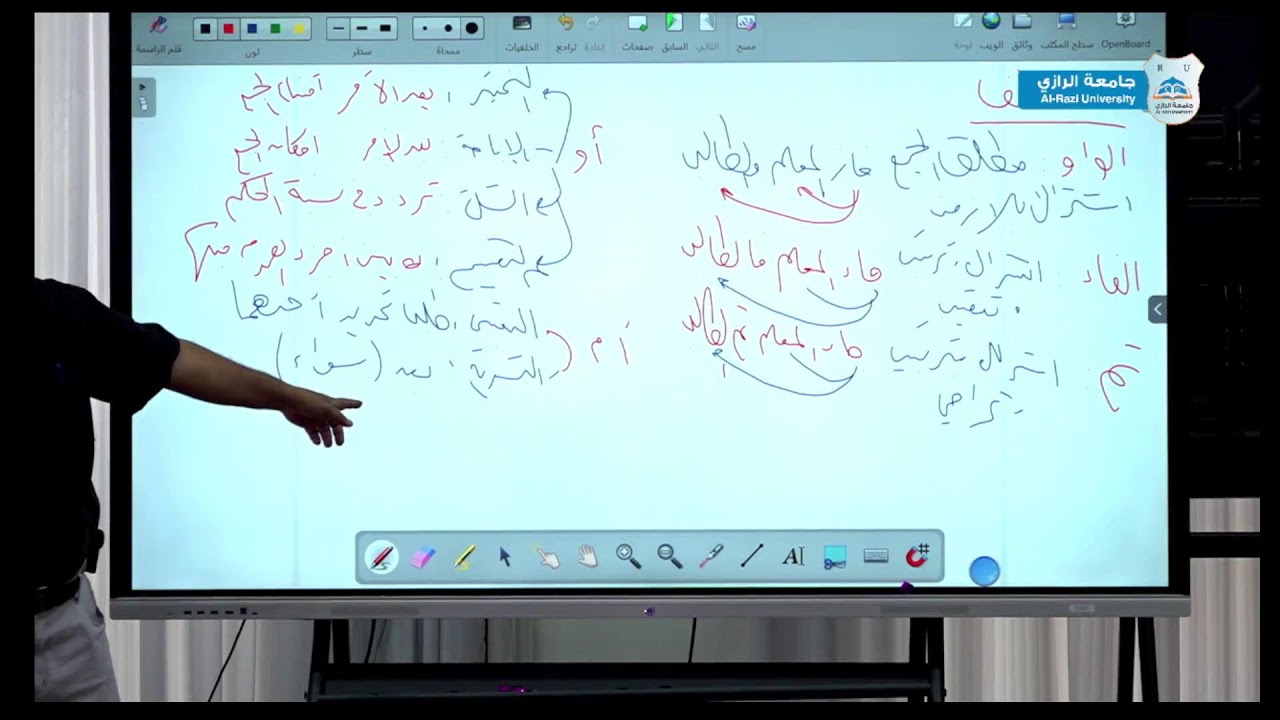 قلم الراسمة
لون
سطر
ممحاة
الخلفيات
تراجع
إعادة
صفحات
السابق
التالي
مسح
لوحة
الويب
وثائق
سطح المكتب
OpenBoard
جامعة الرازي
Al-Razi University
R U
الواو : مطلق الجمع
اشتراك
الفاء : اشتراك ترتيب
و تعقيب
المعلم فالطالب
ثم : اشتراك ترتيب
تراخي
المعلم ثم الطالب
أو
التخيير : بعد الأمر امتناع الجمع
الإباحة : بعد الأمر إمكان الجمع
الشك : تردد في نسبة الحكم
التقسيم :
أم
التعيين : طلب تحديد أحدهما
التسوية : بعد (سواء)
AI